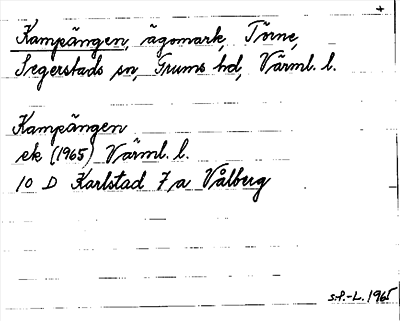 +
Kampängen, ägomark, Törne,
Segerstads sn, Grums hd, Värml. l.
Kampängen
ek (1965) Värml. l.
10 D Karlstad 7a Vålberg
S.F.-L. 1965